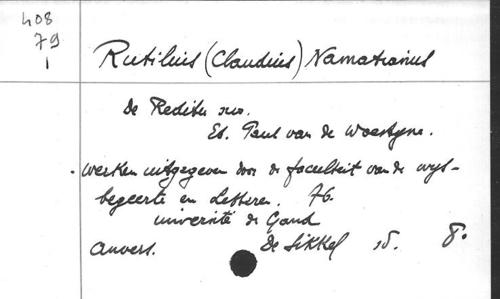 408
79
1
Rutilius (Claudius) Namatianus
De Reditu suo.
Ed. Paul van de Woestyne.
. Werken uitgegeven door de faculteit van de wijs-
begeerte en Letteren. 76.
université de Gand
Anvers. De Sikkel sd. 8.